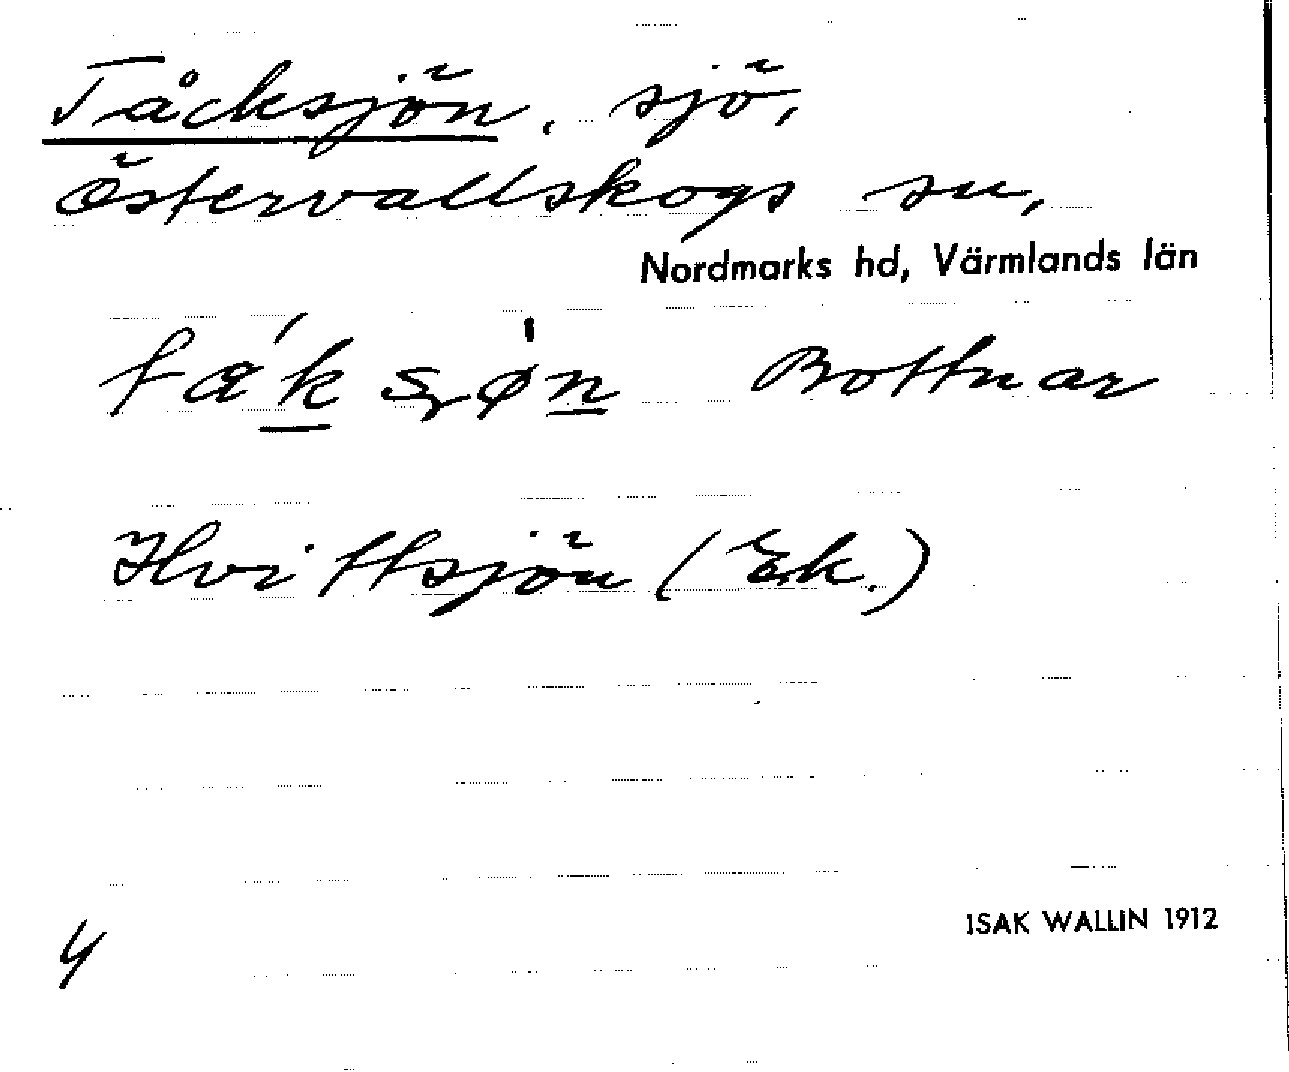 Tåcksjön, sjö,
Östervallskogs sn,
Nordmarks hd, Värmlands län
Bottnar
Hvittsjön (Ek.)
4
ISAK WALLIN 1912